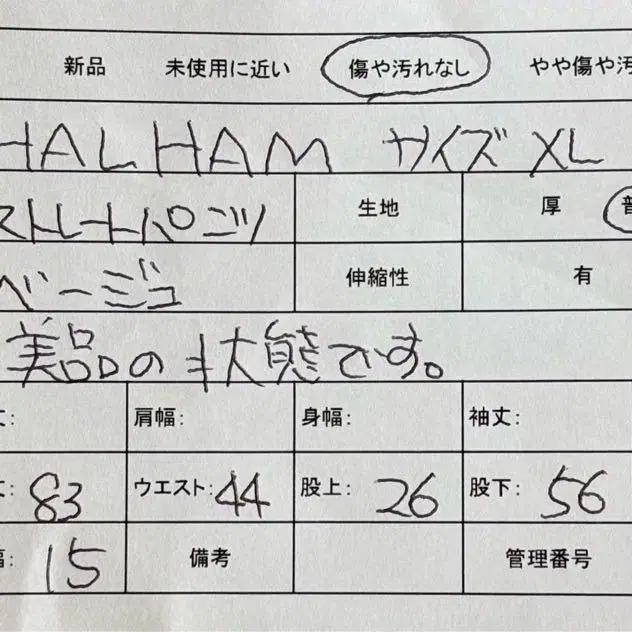 新品 未使用に近い 傷や汚れなし やや傷や汚
HALHAM サイズ XL
ストレートパンツ 生地 厚 普
ベージュ 伸縮性 有
美品の状態です。
丈: 肩幅: 身幅: 袖丈:
丈: 83 ウエスト: 44 股上: 26 股下: 56
幅: 15 備考 管理番号